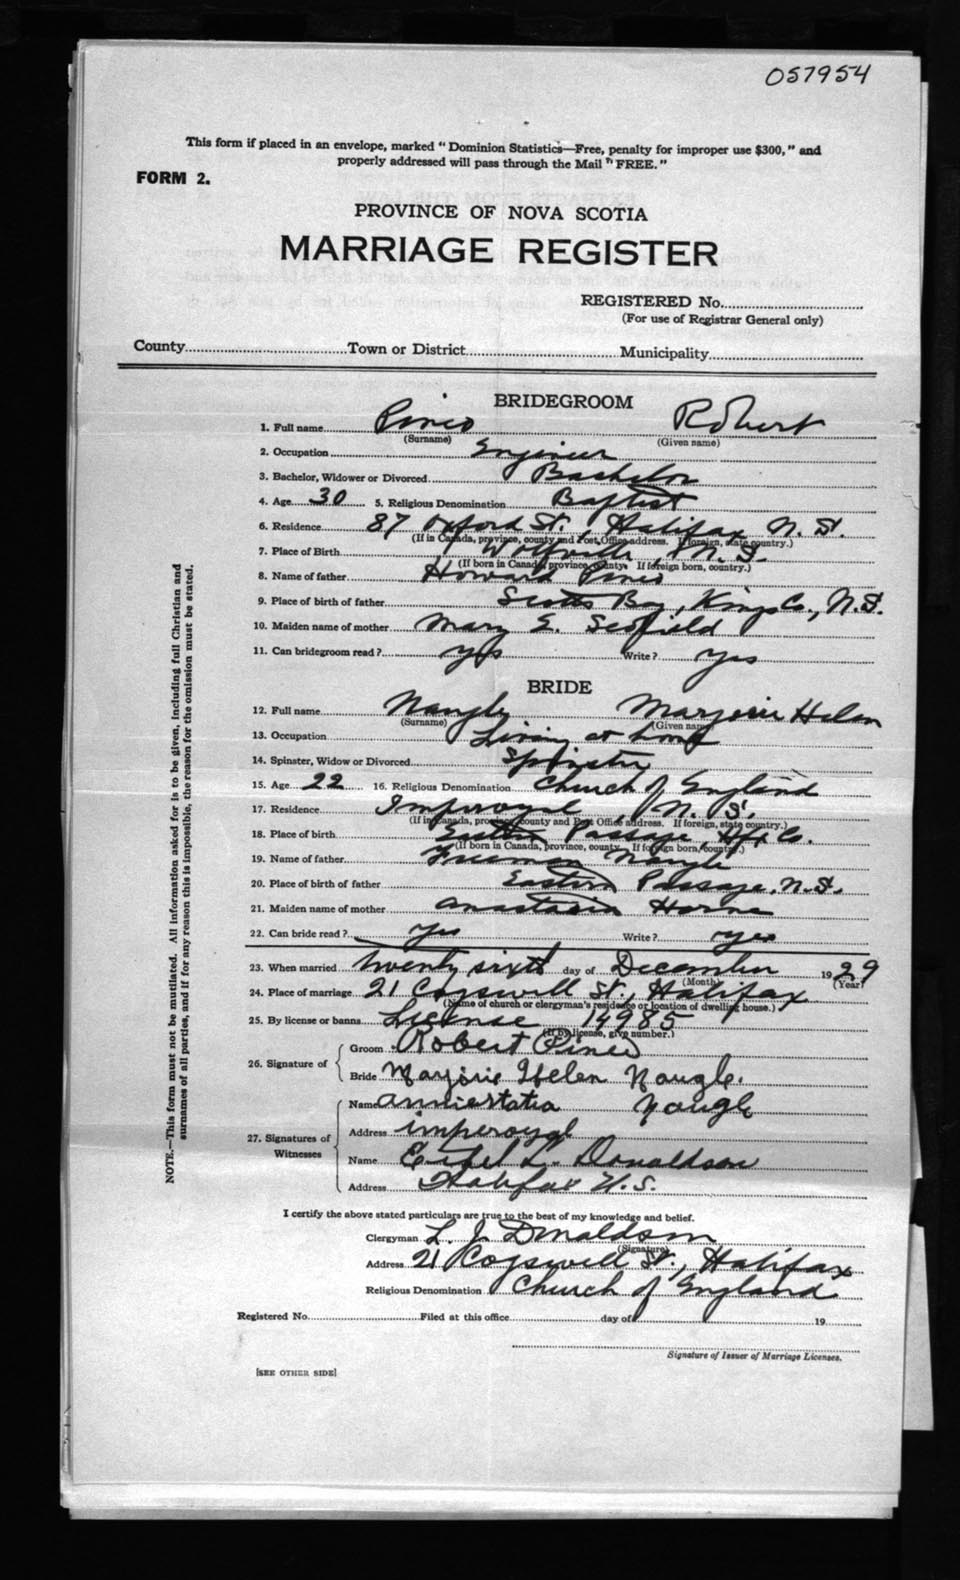 057954
This form if placed in an envelope, marked "Dominion Statistics—Free, penalty for improper use $300," and
properly addressed will pass through the Mail "FREE."
FORM 2.
PROVINCE OF NOVA SCOTIA
MARRIAGE REGISTER
REGISTERED No.
(For use of Registrar General only)
County Town or District Municipality
BRIDEGROOM
1. Full name Pineo Robert
(Surname) (Given name)
2. Occupation Engineer
3. Bachelor, Widower or Divorced Bachelor
4. Age 30 5. Religious Denomination Baptist
6. Residence 87 Oxford St., Halifax N. S.
(If in Canada, province, county and Post Office address. If foreign, state country.)
7. Place of Birth Wolfville, N. S.
(If born in Canada, province, county. If foreign born, country.)
8. Name of father Howard Pineo
9. Place of birth of father Scotts Bay, Kings Co., N.S.
10. Maiden name of mother Mary E. Scofield
11. Can bridegroom read? yes Write? yes
BRIDE
12. Full name Naugle Marjorie Helen
(Surname) (Given name)
13. Occupation Living at home
14. Spinster, Widow or Divorced Spinster
15. Age 22 16. Religious Denomination Church of England
17. Residence Imperoyal, N. S.
(If in Canada, province, county and Post Office address. If foreign, state country.)
18. Place of birth Eastern Passage, Hfx Co.
(If born in Canada, province, county. If foreign born, country.)
19. Name of father Freeman Naugle
20. Place of birth of father Eastern Passage, N.S.
21. Maiden name of mother Anastasia Horne
22. Can bride read? yes Write? yes
23. When married twenty sixth day of December 1929
(Month) (Year)
24. Place of marriage 21 Cogswell St., Halifax
(Name of church or clergyman's residence or location of dwelling house.)
25. By license or banns License 19985
(If by license, give number.)
26. Signature of Groom Robert Pineo
Bride Marjorie Helen Naugle.
27. Signatures of Witnesses Name Anniestatia Naugle
Address Imperoyal
Name Ethel L. Donaldson
Address Halifax N.S.
I certify the above stated particulars are true to the best of my knowledge and belief.
Clergyman L. J. Donaldson
(Signature)
Address 21 Cogswell St., Halifax
Religious Denomination Church of England
Registered No. Filed at this office day of 19
Signature of Issuer of Marriage Licenses.
[SEE OTHER SIDE]
NOTE.—This form must not be mutilated. All information asked for is to be given, including full Christian and
surnames of all parties, and if for any reason this is impossible, the reason for the omission must be stated.